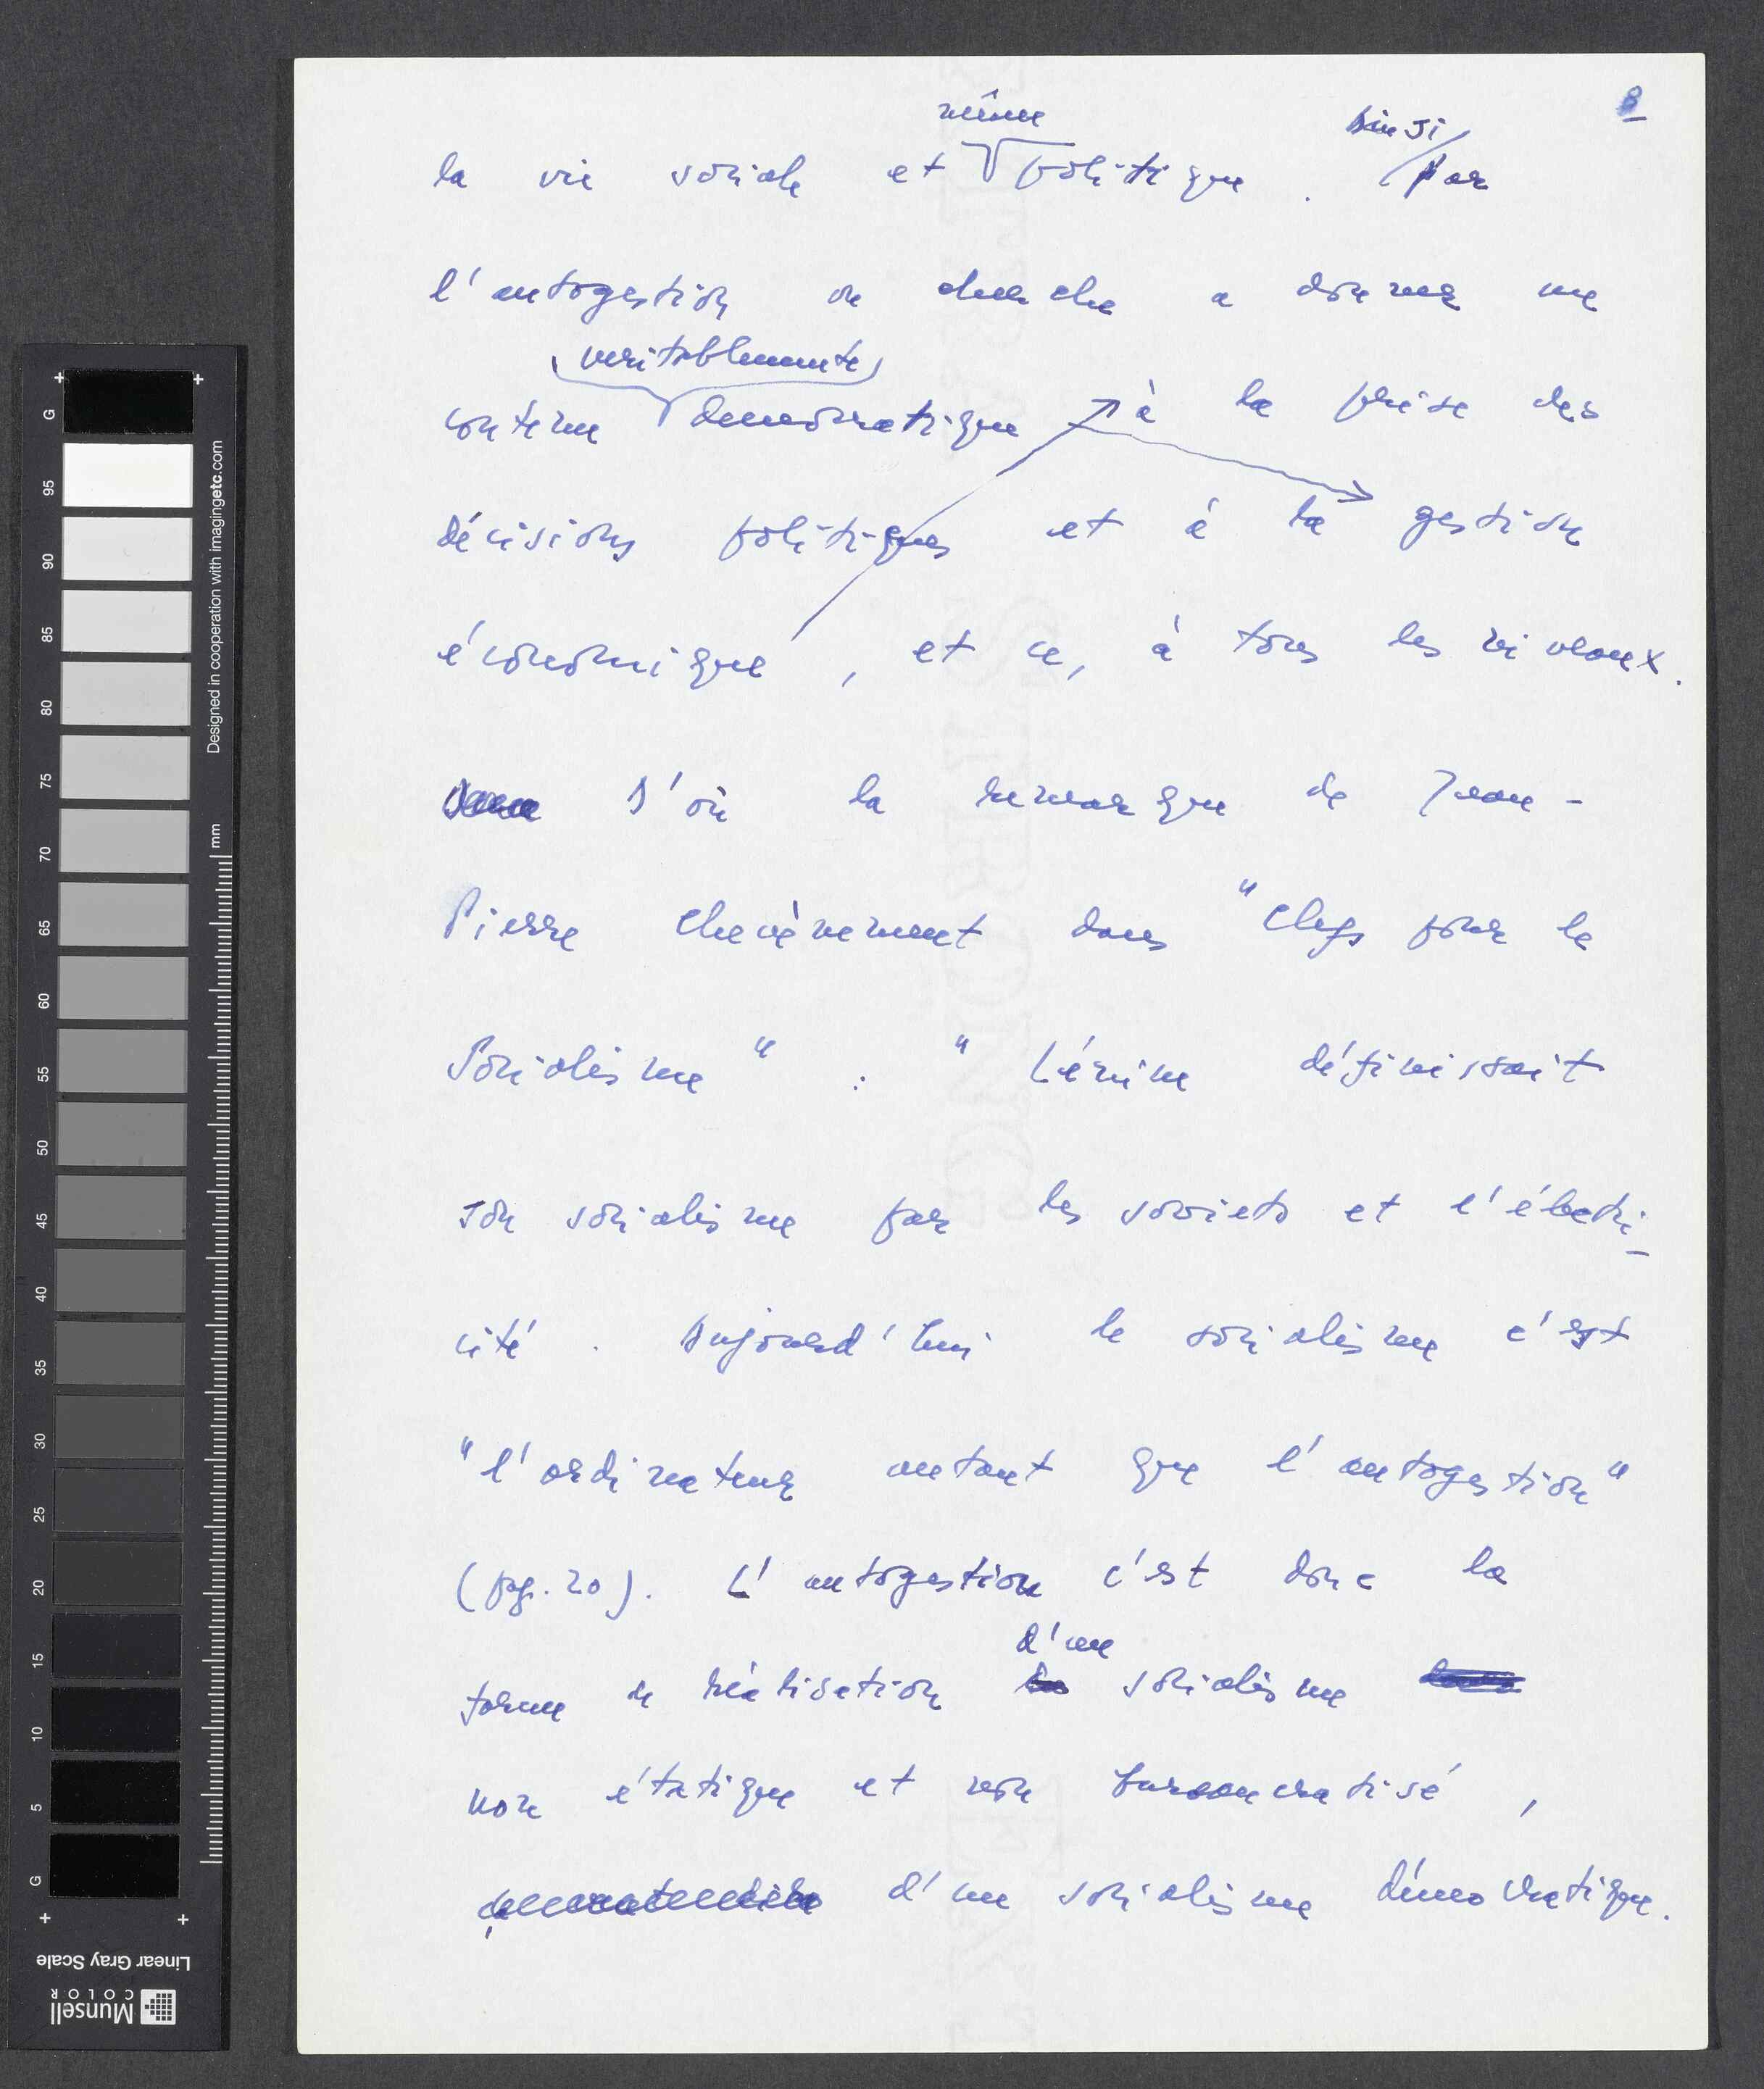 8
même
Ainsi
la vie sociale et politique . Par
l'autogestion on cherche a donner un
veritablemente
contenu democratique à la prise des
décisions politiques et à la gestion
économique , et ce, à tous les niveaux.
D'où la remarque de Jean-
Pierre Chevènement dans "Clefs pour le
Socialisme" : "Lénine définissait
son socialisme par les soviets et l'électri-
cité . Aujourd'hui le socialisme c'est
"l'ordinateur autant que l'autogestion"
(pg. 20). L'autogestion c'est donc la
d'un
forme de réalisation socialisme
non étatique et non bureaucratisé ,
d'un socialisme démocratique.
G 95 90 85 80 75 70 65 60 55 50 45 40 35 30 25 20 15 10 5 G
Designed in cooperation with imagingetc.com
mm
Linear Gray Scale
Munsell
COLOR